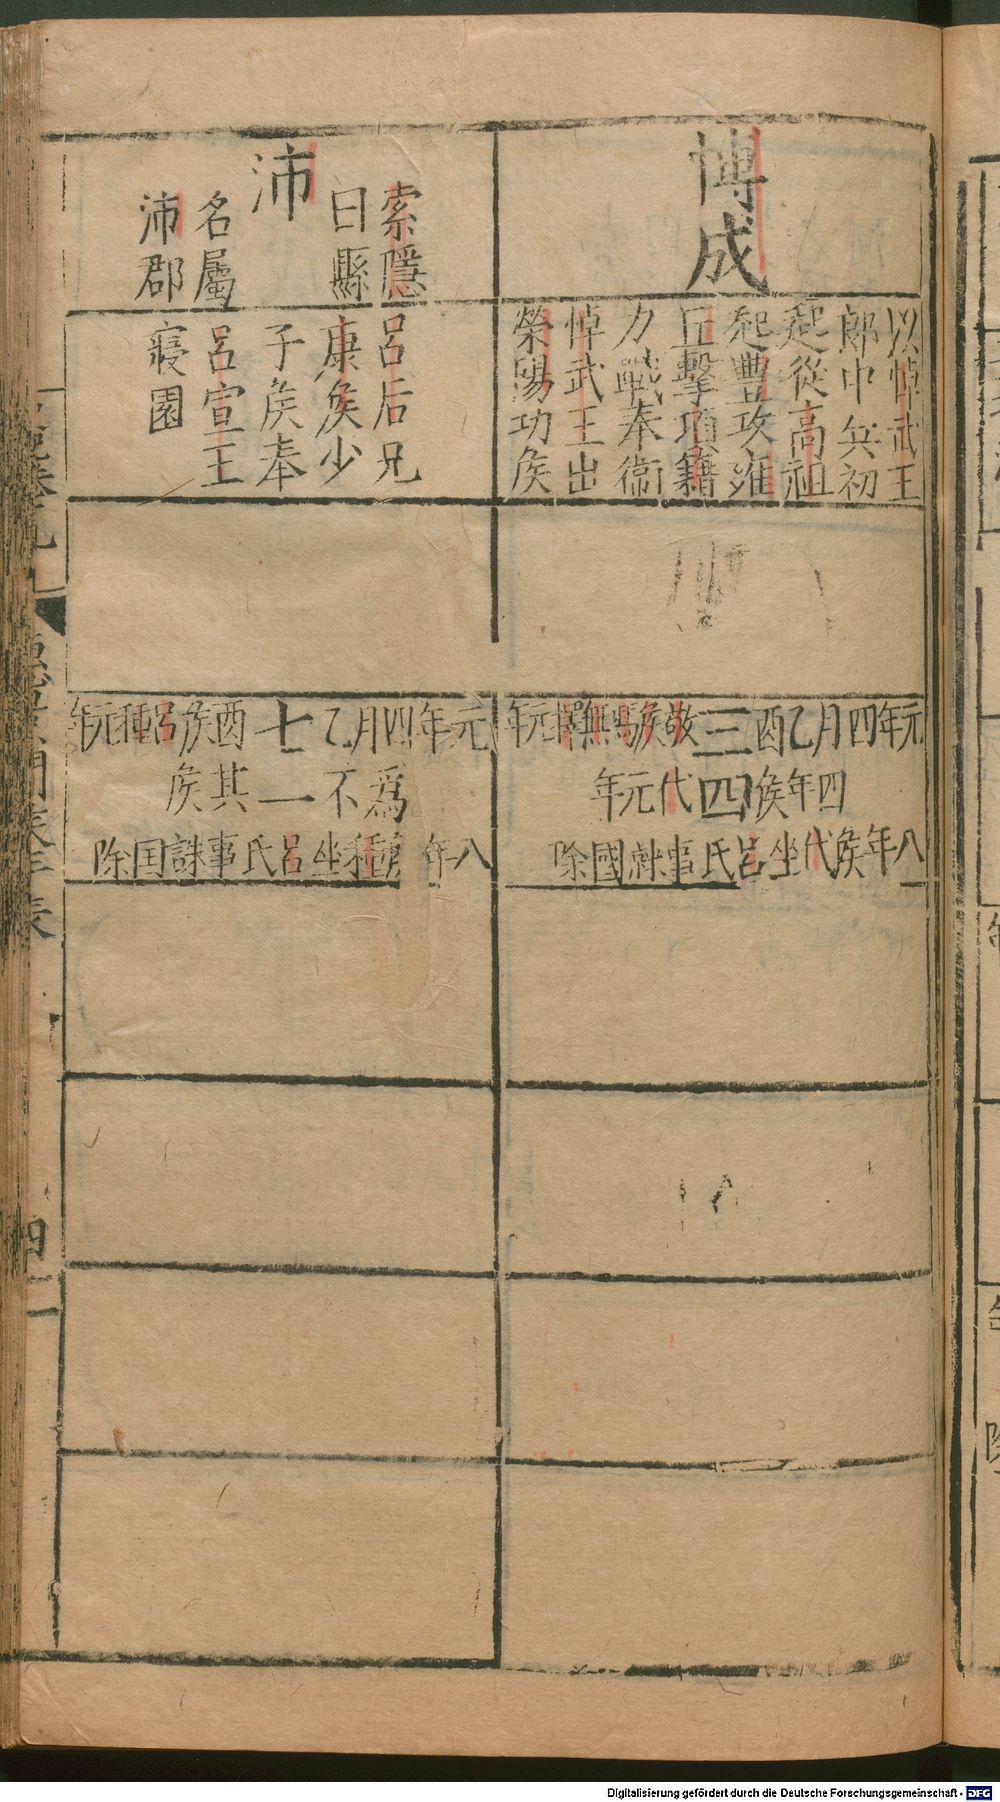 博成
以悼武王
郎中兵初
起從高祖
起豐攻雍
丘擊項籍
力戰奉衞
悼武王出
榮陽功侯
元年四月乙酉三敬侯馮無擇元年
四年侯四代元年
八年侯代坐呂氏事誅國除
沛
索隱
曰縣
名屬
沛郡
呂后兄
康侯少
子侯奉
呂宣王
寢園
元年四月乙七酉侯呂種元年
爲不一其侯
八年種坐呂氏事誅国除
Digitalisierung gefördert durch die Deutsche Forschungsgemeinschaft - DFG